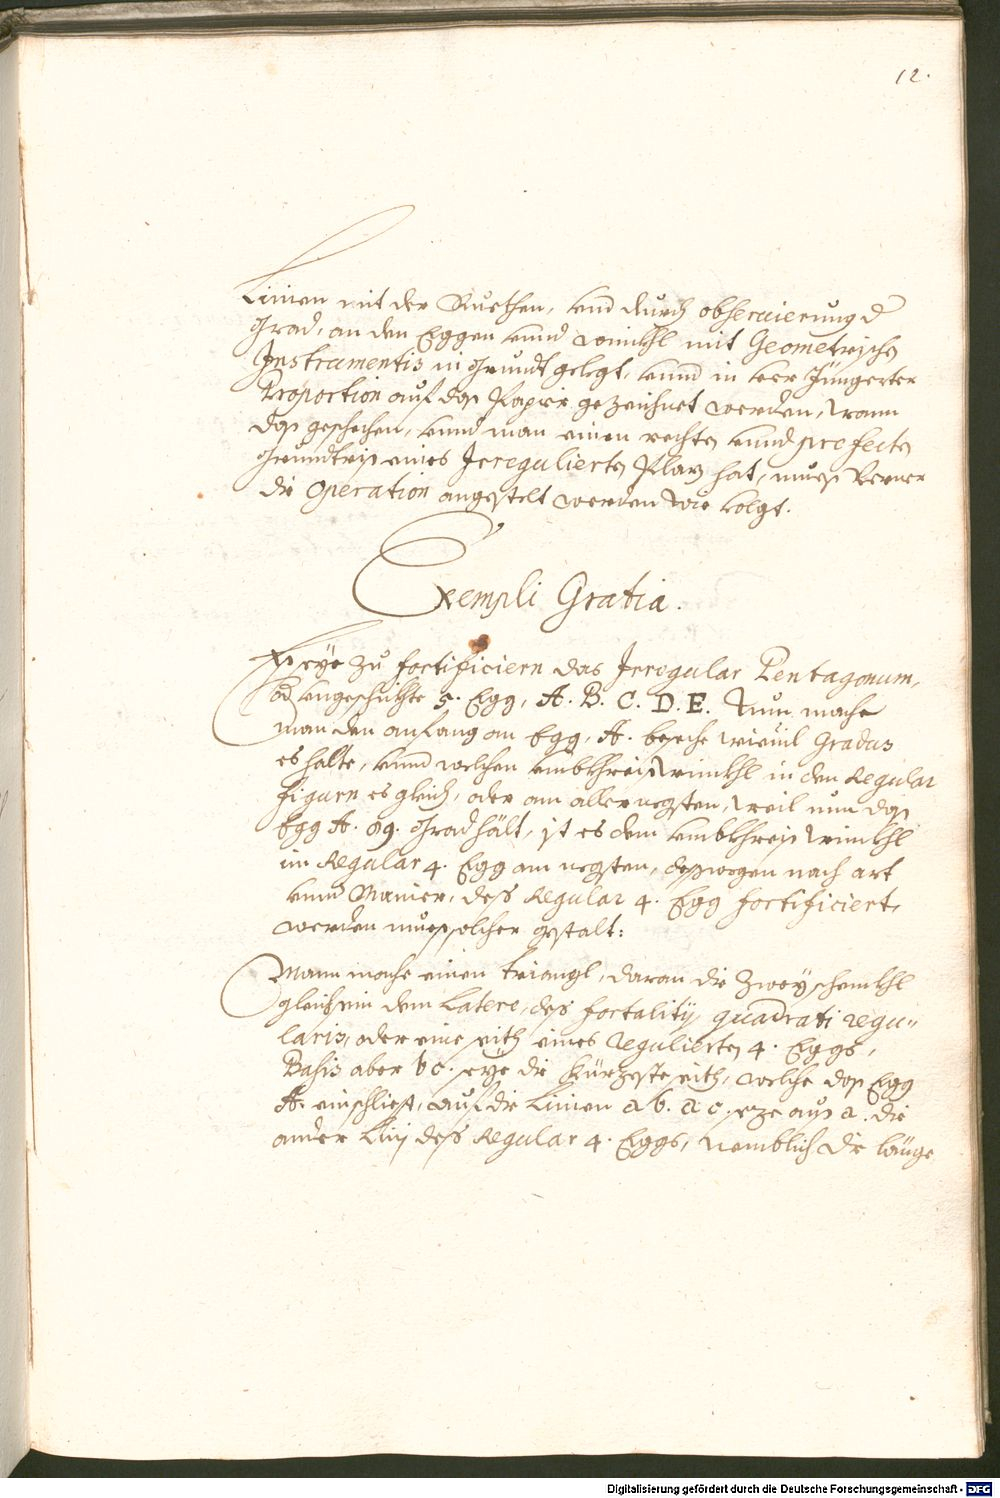 12.
Linien mit der Ruethen, vnd durch obseruierung d
Grad, an den Eggen vnnd winkhl mit Geometrischen
Instramentis in grundt gelegt, vnnd in
Proportion auf das Papier gezeichnet werden, Wann
das geschehen, vnnd man einen rechten vnnd profecten
Grundtriß eines Irregulierten Plaz hat, mueß ferner
die Operation angestelt werden wie volgt.
Exempli Gratia.
Es seye zu fortificiern das Irregular Pentagonum,
od vngeschikhte 5. Egg, A. B. C. D. E. Nun mache
man den anfang an Egg, A. besehe wieuil Gradus
es halte, vnnd welchen vmbkhreiß Winkhl in den Regular
figurn es gleich, oder am aller negsten, weil nun das
Egg A. 89. Grad hält, ist es dem vmbkhreiß Winkhl
im Regular 4. Egg am negsten, deßwegen nach art
vnnd Manier, deß Regular 4. Egg fortificiert,
werden mueß solcher gestalt:
Mann mache einen triangl, daran die zwey schenkhl
gleich sein dem Latere, deß fortality quadrati regu-
laris, oder eine seith eines Regulierten 4. Eggs,
Basis aber bc. seye die kürzeste seith, welche das Egg
A. einschliest, auf die Linien ab. ac. seze auß a. die
ander Linj deß Regular 4. Eggs, nemblich die länge
Digitalisierung gefördert durch die Deutsche Forschungsgemeinschaft - DFG